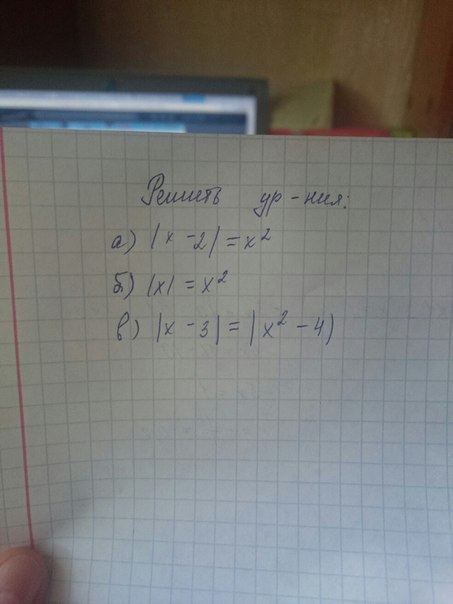 Решить ур-ния:
а) |x - 2| = x²
б) |x| = x²
в) |x - 3| = |x² - 4|